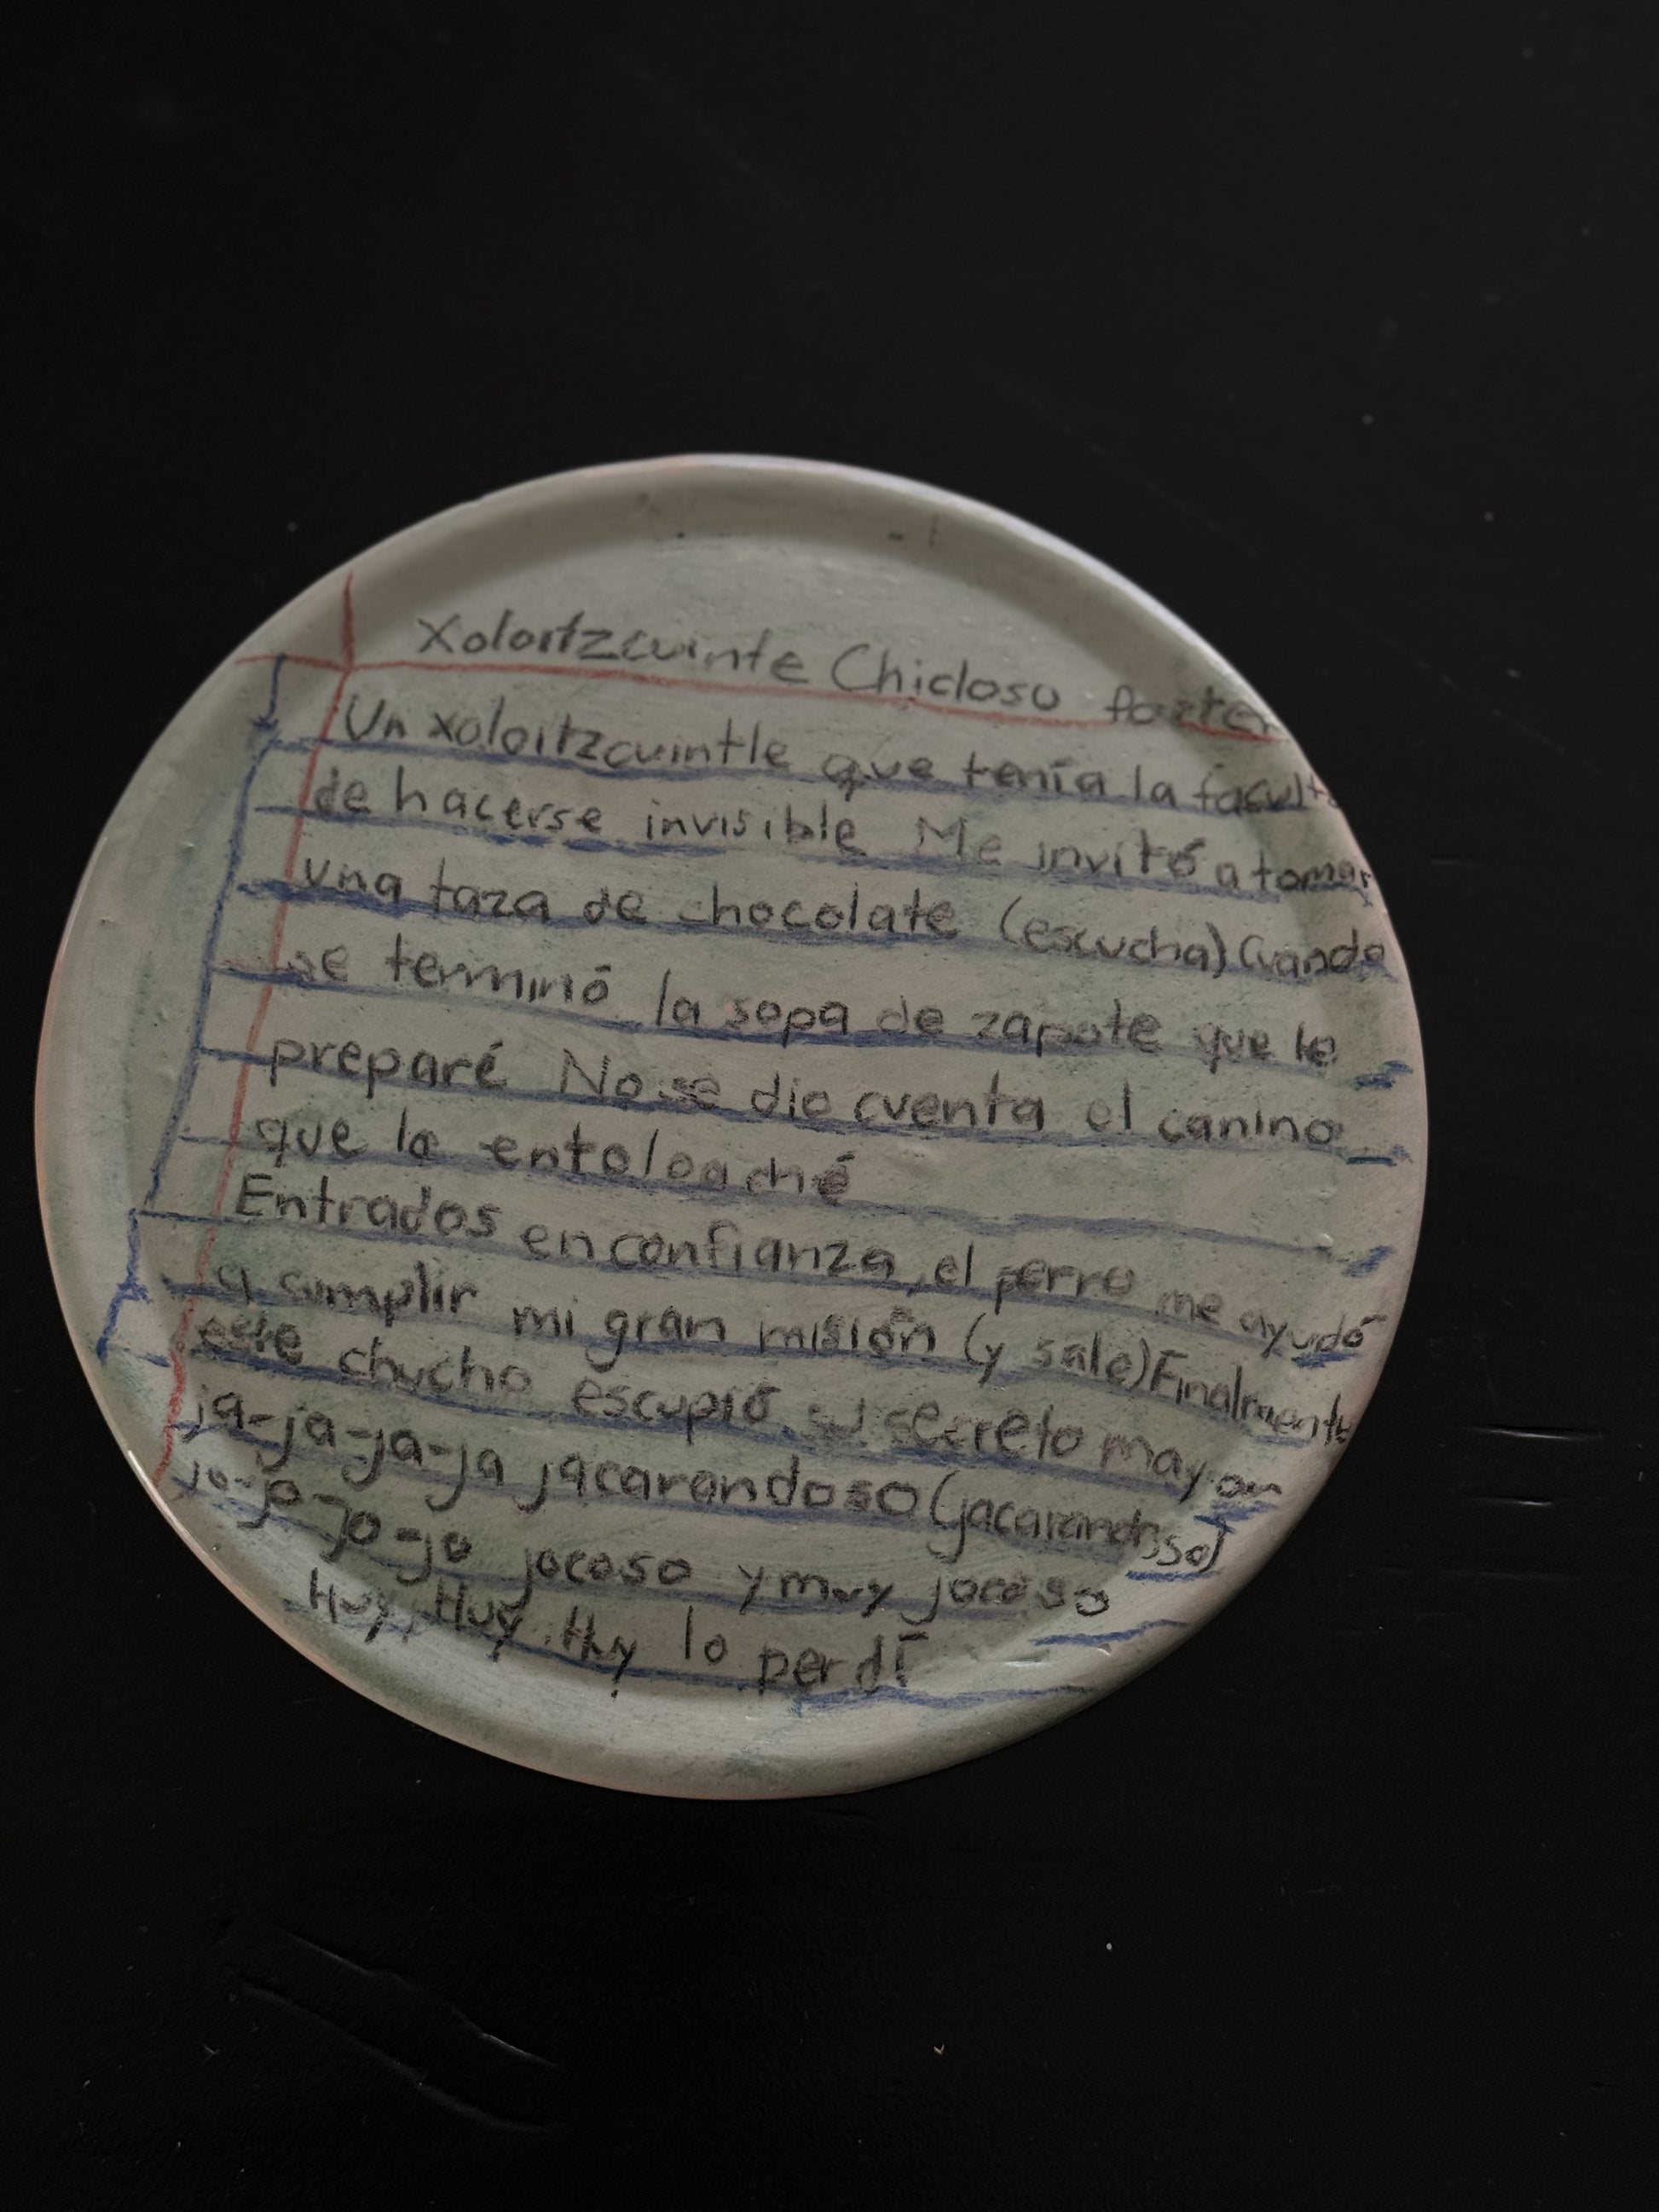 Xoloitzcuinte Chicloso
Un xoloitzcuintle que tenía la
de hacerse invisible Me invitó a tomar
una taza de chocolate (escucha) Cuando
se terminó la sopa de zapote que le
preparé No se dio cuenta el canino
que lo entoloaché
Entrados en confianza, el perro me ayudó
a cumplir mi gran misión (y sale) Finalmente
este chucho escupió su secreto mayor
ja-ja-ja-ja jacarandoso (jacarandoso)
jo-jo-jo-jo jocoso y muy jocoso
Huy, Huy, Huy lo perdí